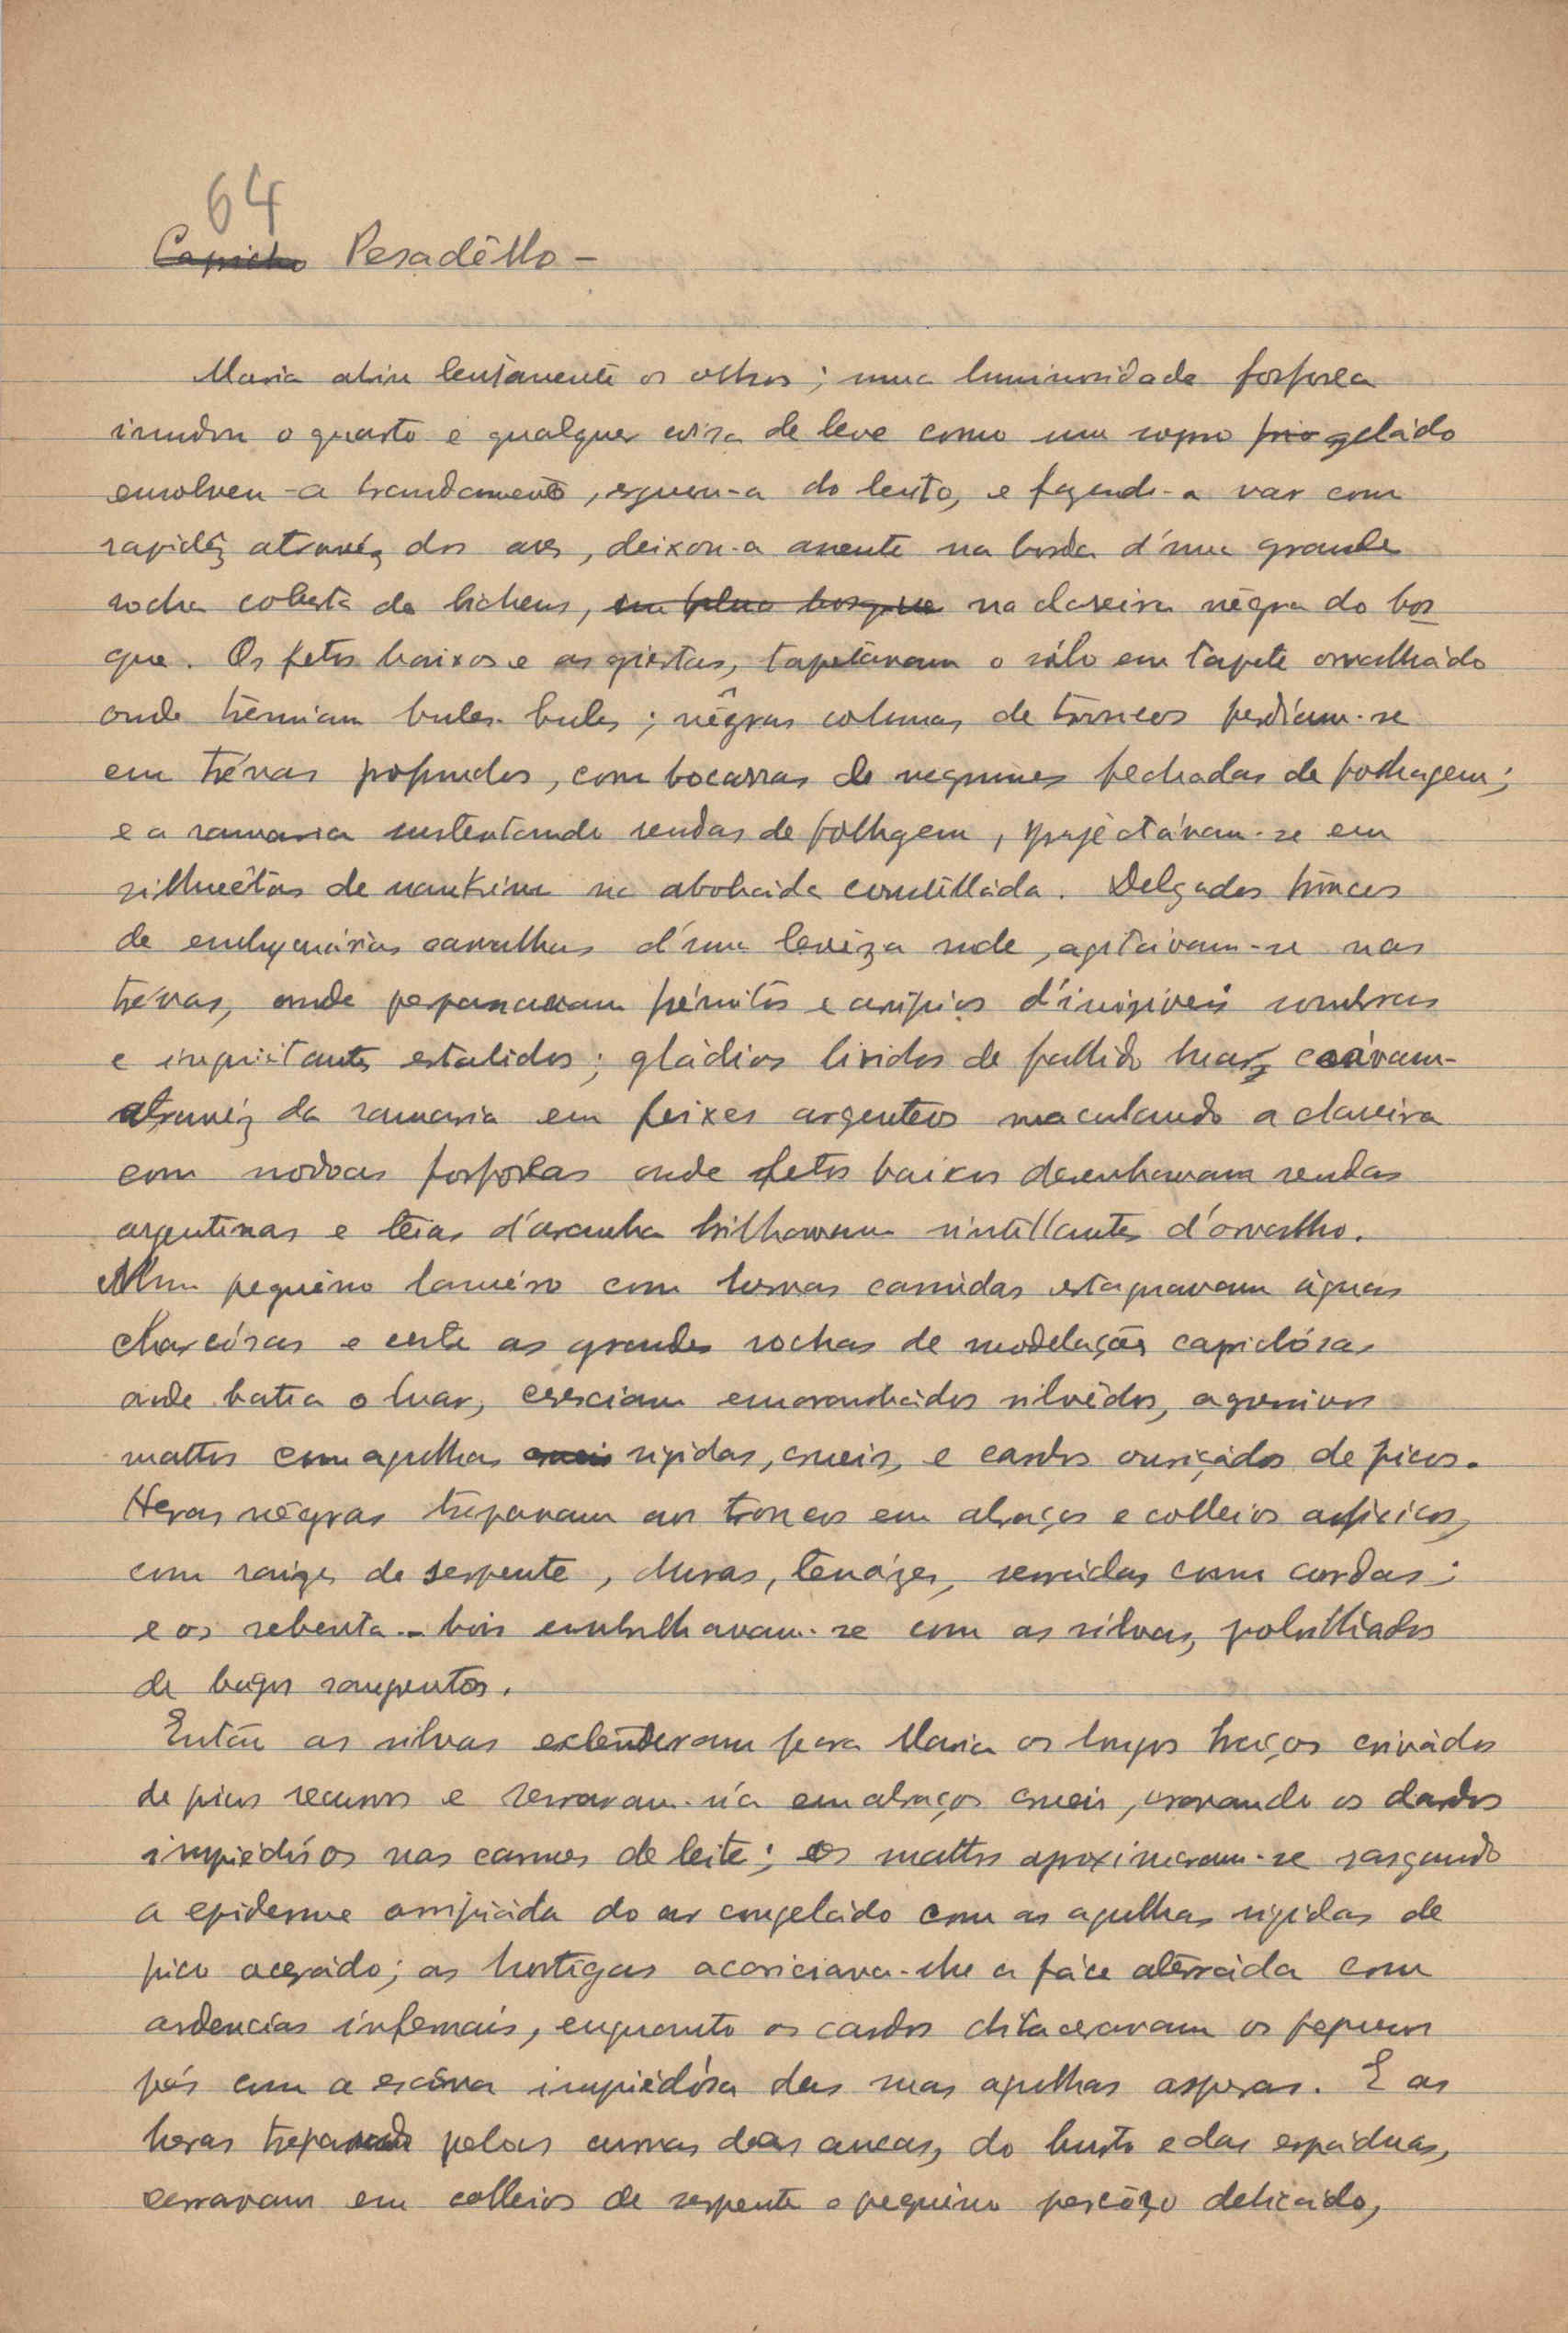 64
Capricho Pesadêllo -
Maria abriu lentamente os olhos; uma luminosidade fosforea
inundou o quarto e qualquer coisa de leve como um sopro frio geládo
envolveu-a brandamente, ergueu-a do leito, e fazendo-a voar com
rapidêz atravéz dos ares, deixou-a assente na borda d'uma grande
rocha coberta de lichens, em pleno bosque na clareira négra do bos
que. Os fetos baixos e as giestas, tapetávam o sólo em tapete orvalhádo
onde trémiam bules-bules; négras colunas de troncos perdíam-se
em trévas profundas, com bocarras de negrumes fechadas de folhagem;
e a ramaria sustentando rendas de folhagem, projéctávam-se em
silhuêtas de nankim na abobáda constelláda. Delgados troncos
de carvalhas d'uma levêza rude, agitávam-se nas
trévas, onde perpassavam frémitos e arripios d'invisiveis sombras
e inquietantes estalidos; gládios lividos de pallido luar coávam-
atravéz da ramaria em feixes argenteos maculando a clareira
com nodoas fosforeas onde fetos baixos desenhavam rendas
argentinas e teias d'aranha brilhavam sintillantes d'orvalho.
Num pequeno laméiro com hervas comidas estagnavam águas
charcósas e entre as grandes rochas de modelações caprichósas
onde batia o luar, cresciam emaranhádos silvêdos, agressivos
mattos com agulhas crueis rigidas, crueis, e cardos ouriçádos de picos.
Heras négras trepavam aos troncos em abraços e colleios
com raizes de serpente, duras, tenázes, cerradas como cordas;
e os rebenta-bois embrulhavam-se com as silvas, polvilhados
de bagos sangrentos.
Então as silvas extenderam para Maria os longos braços crivádos
de picos recurvos e cerraram-n'a em abraços crueis, cravando os dardos
impiedósos nas carnes de leite; os mattos aproximaram-se rasgando
a epiderme arripiáda do ar congeládo com as agulhas rigidas de
pico aceràdo; as hortigas acariciava-lhe a fáce aterráda com
ardencias infernais, enquanto os cardos dilaceravam os pequenos
pés com a escôva impiedósa das suas agulhas asperas. E as
heras trepando pelas curvas das ancas, do busto e das espáduas,
cerravam em colleios de serpente o pequeno pescôço delicádo,